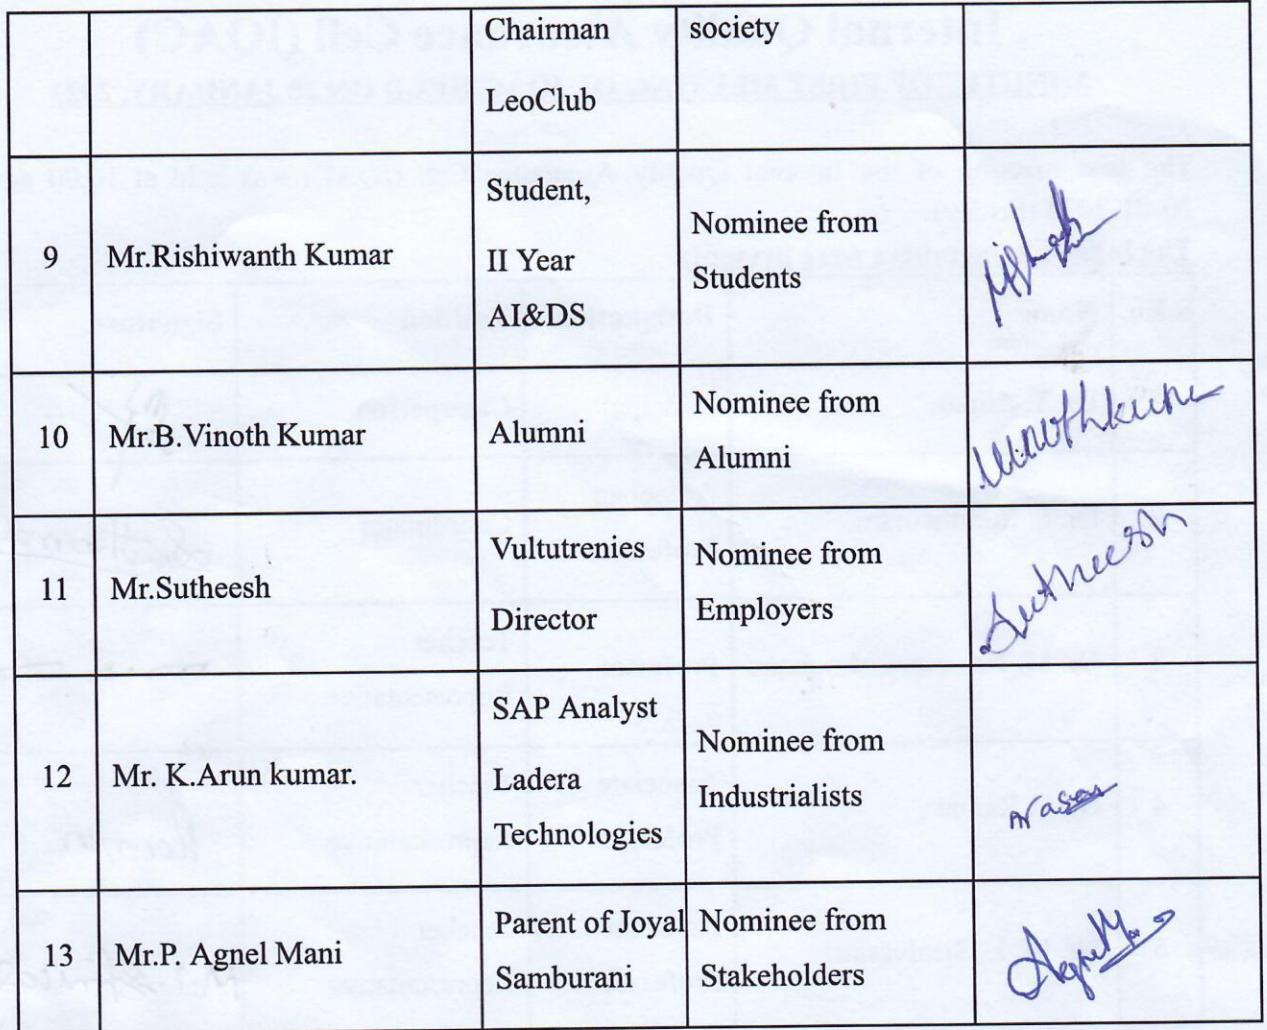 Chairman society
LeoClub
9 Mr.Rishiwanth Kumar Student, II Year AI&DS Nominee from Students
10 Mr.B.Vinoth Kumar Alumni Nominee from Alumni Vinothkumar
11 Mr.Sutheesh Vultutrenies Director Nominee from Employers Sutheesh
12 Mr. K. Arun kumar. SAP Analyst Ladera Technologies Nominee from Industrialists
13 Mr.P. Agnel Mani Parent of Joyal Samburani Nominee from Stakeholders